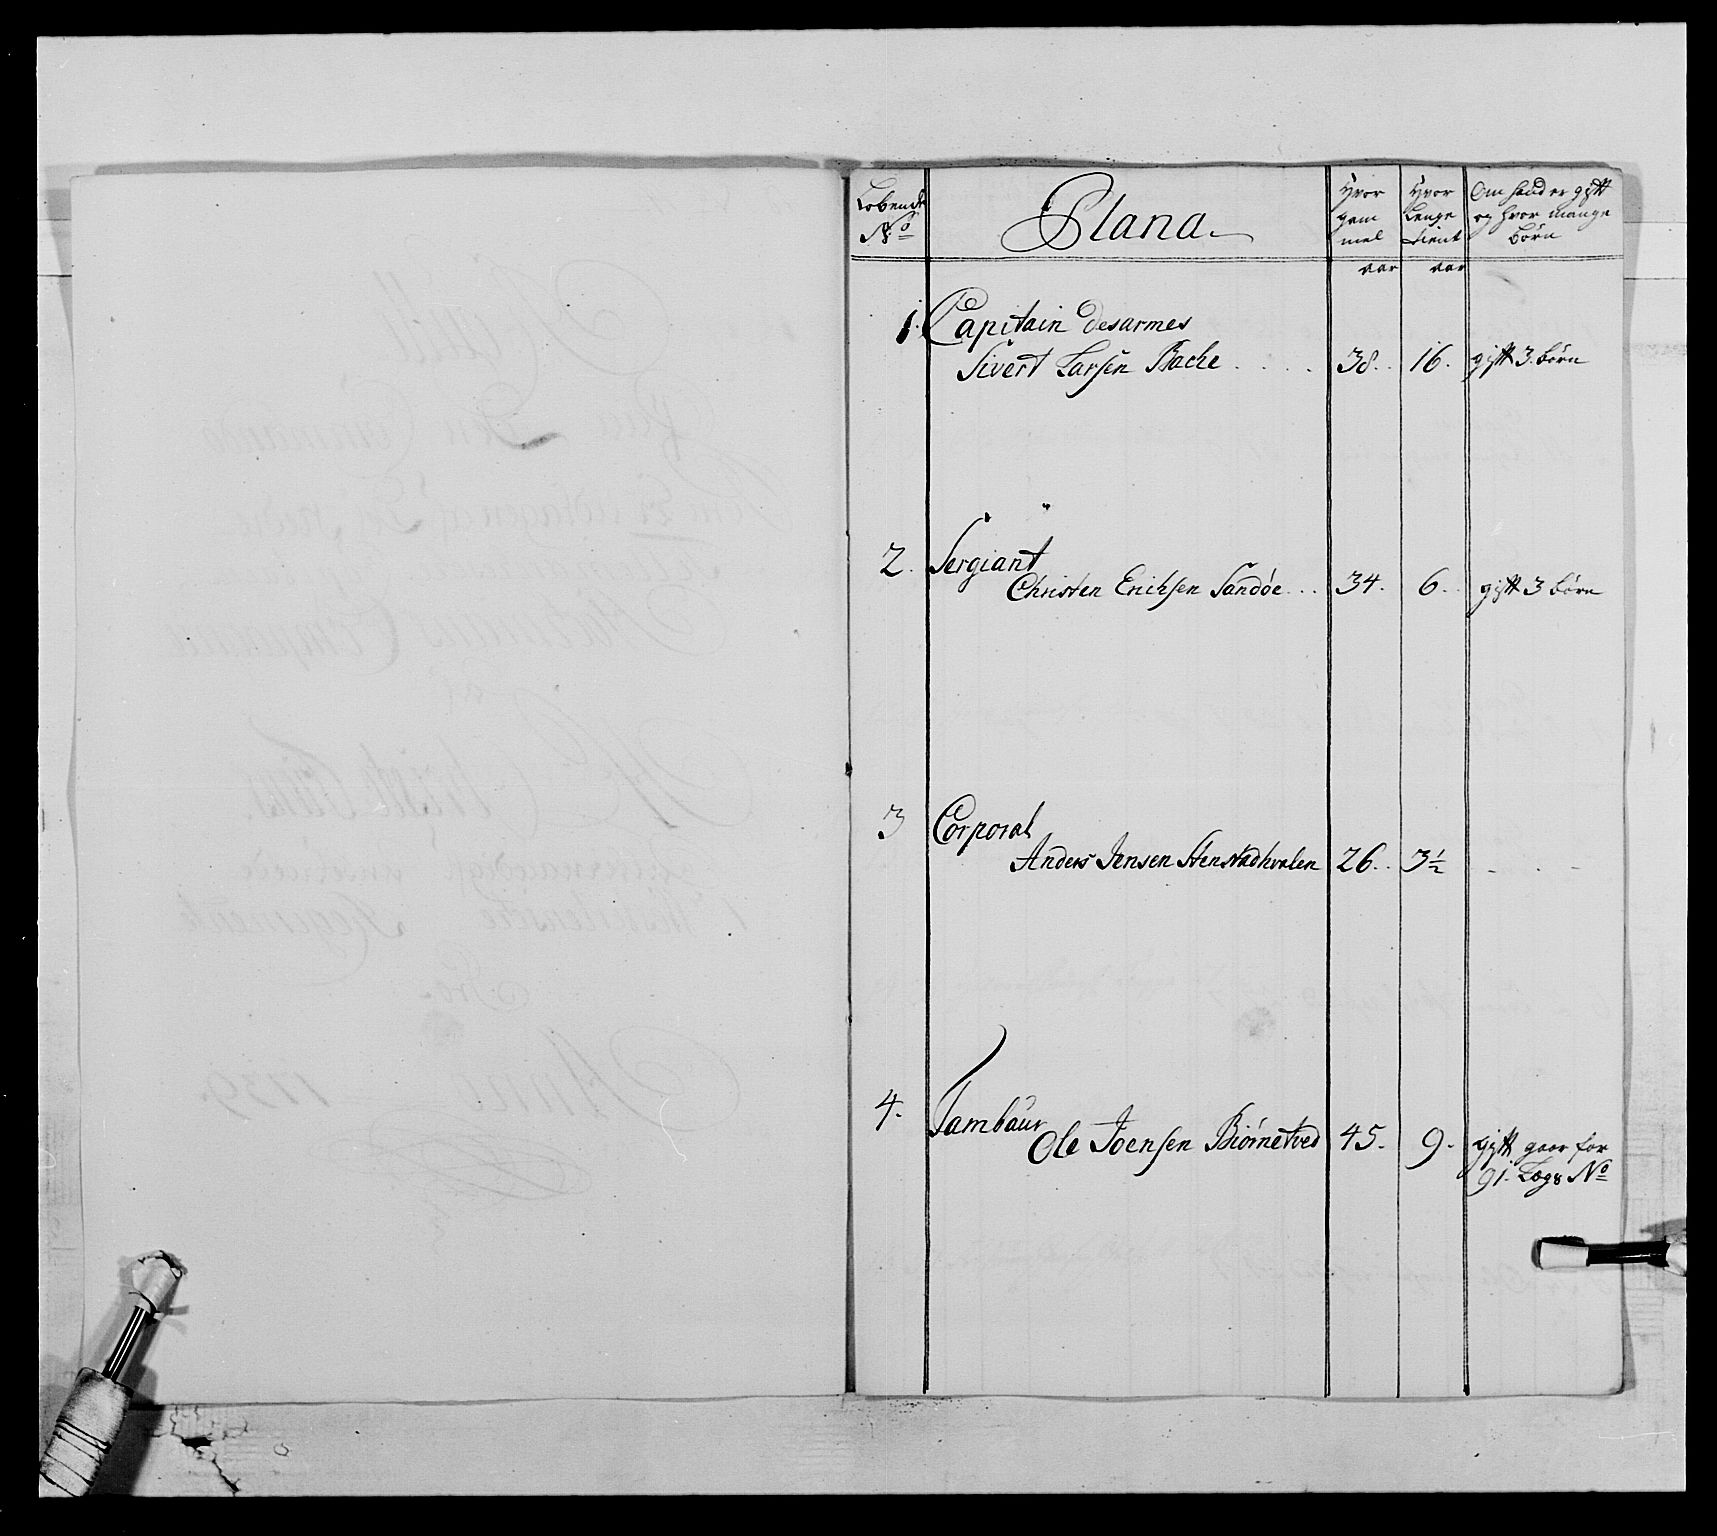 Lobende
No
Plana.
Hvor
gam
mel
Hvor
Lenge
tient
Om hand er gift
og hvor mange
børn
aar
aar
1. Capitain desarmes
Sivert Larsen Bache . . . . 38. 16. gift 3. børn
2. Sergiant
Christen Erichsen Sandöe . . . 34. 6. gift 3 børn
3 Corporal
Anders Jensen Stenstadhvalen 26. 3½ - - -
4. Tambour
Ole Joensen Biørnetved 45. 9. gift gaar for
91. Lægs No